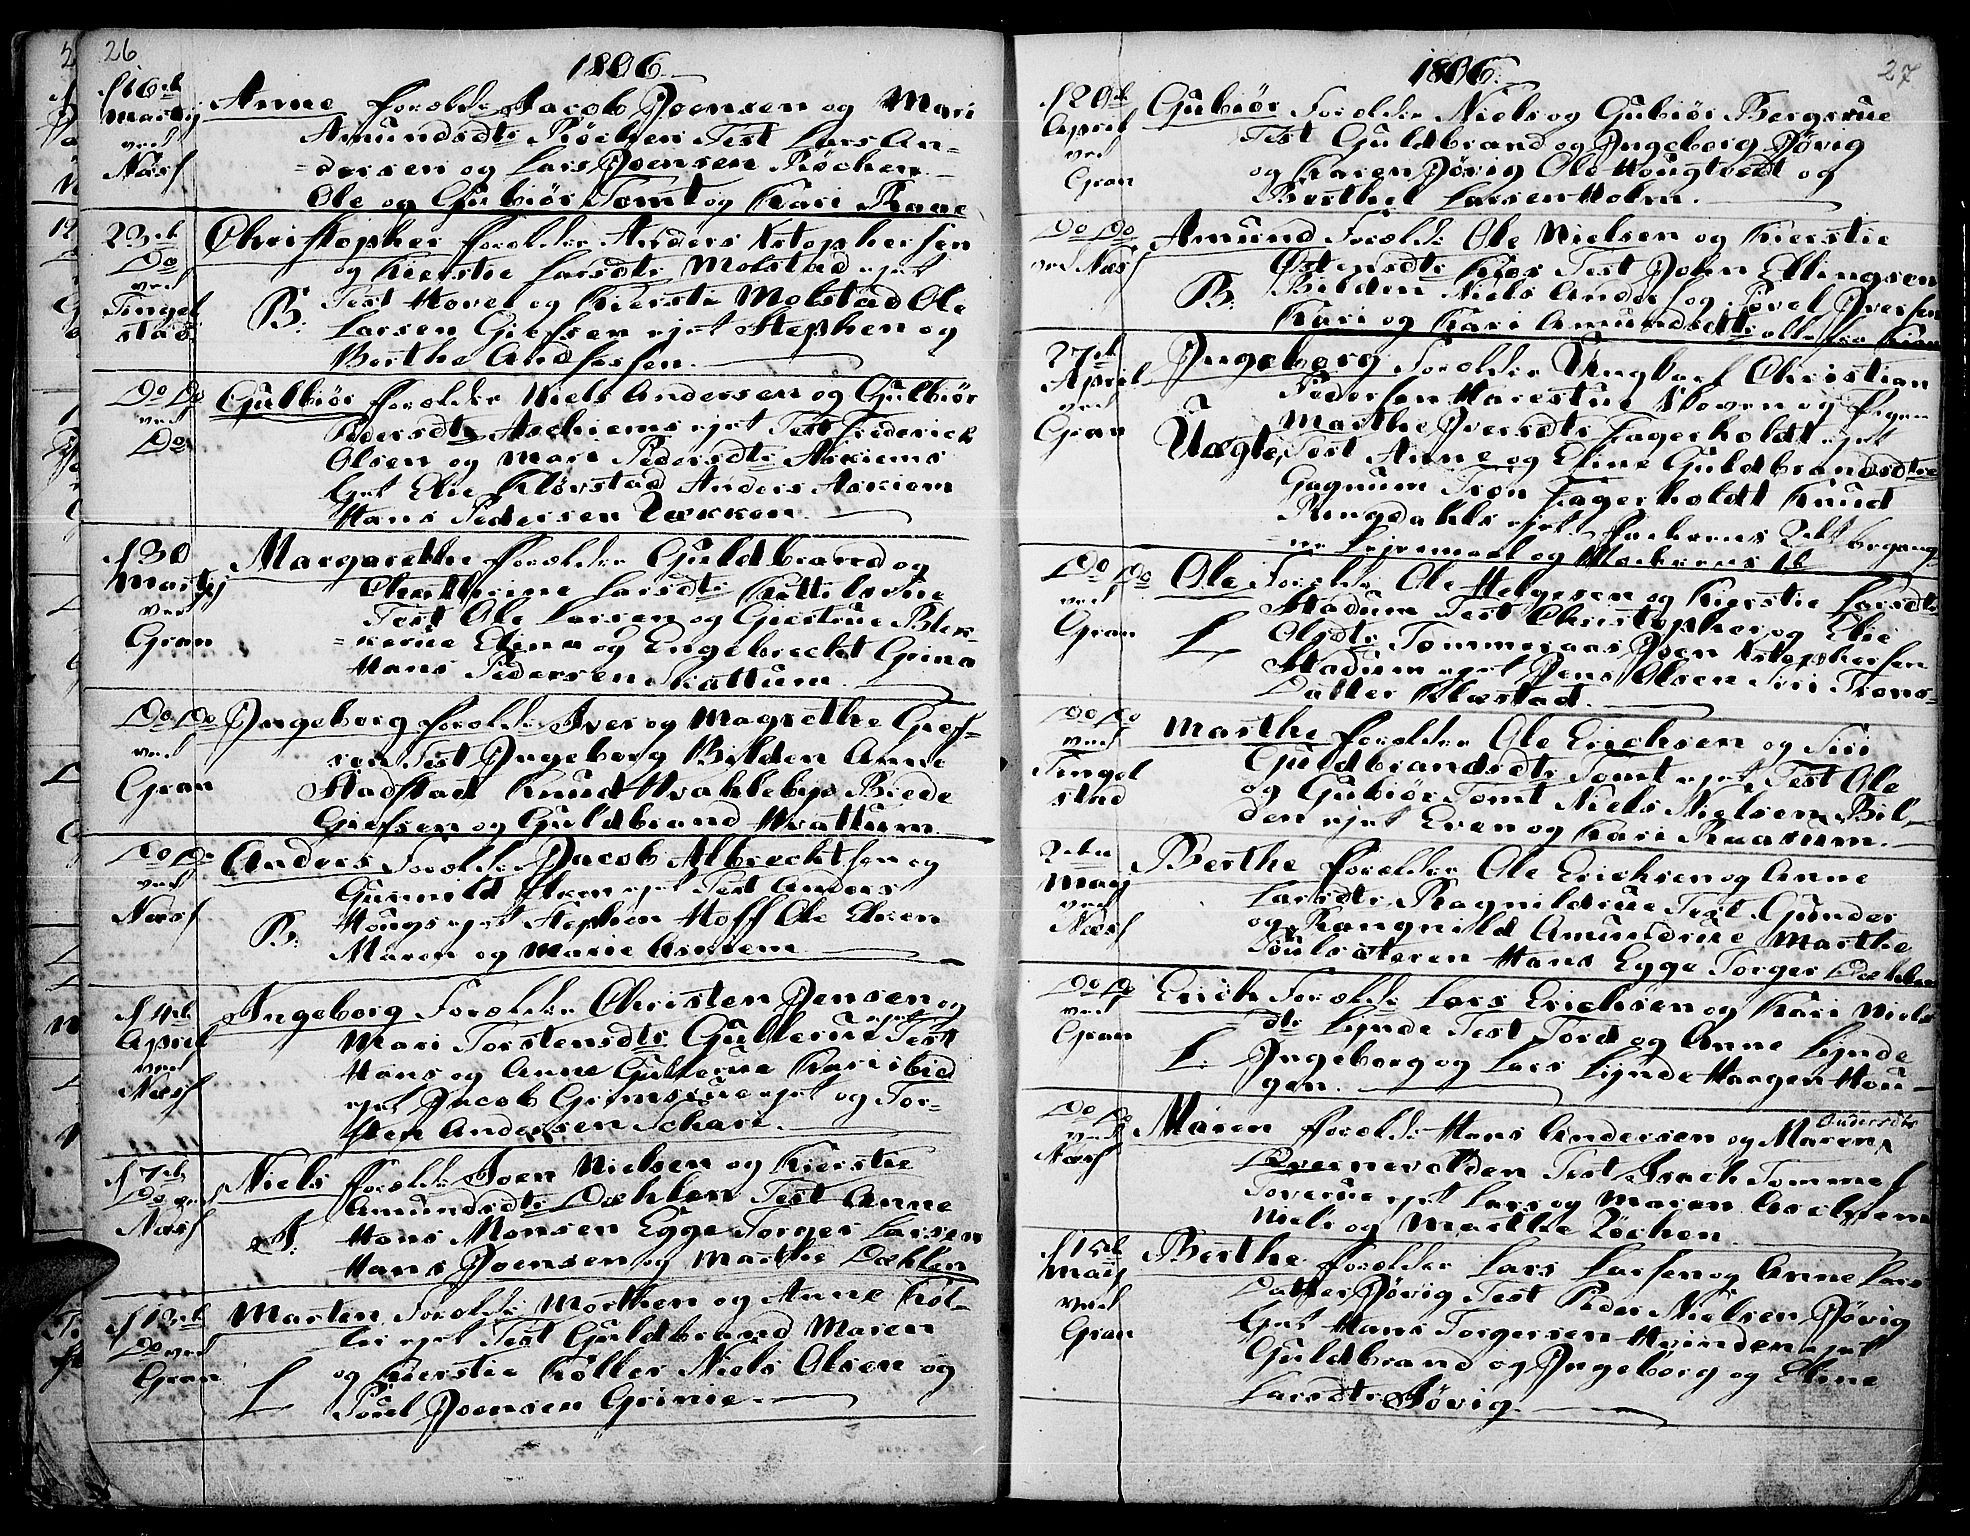 26
1806.
d 16de Martij ved Næss
Anne foreldre Jacob Joensen og Mari
Amundsdtr Røchen Test Lars An=
=dersen og Lars Joensen Røchen
Ole og Gubiør Tomt og Kari Raae
23de Do ved Tingelstad
Christopher foreldre Anders Kstophersen
og Kierstie Larsdtr Molstad ejet
B: Test Hover og Kiersti Molstad Ole
Larsen Giefsen ejet Stephen og
Berthe
Do Do ved Do
Gulbiør foreldre Niels Andersen og Gulbiør
Pedersdtr Aschiems ejet Test Frederich
Olsen og Mari Pedersdtr Askiems
Ejet Elie Kløvstad Anders Askiem
Hans Pedersen
d 30 Martij ved Gran
Margarethe foreldre Guldbrand og
Chatherine Larsdtr
Test Ole Larsen og Giertrue Blek=
=kerue Elina og Engebrecht Grina
Hans Pedersen Skattum
Do Do ved Gran
Ingeborg foreldre Iver og Magrethe Gief=
sen Test Ingeborg Bilden Anne
Stadstad Knud Hvahlebye Brede
Giefsen og Guldbrand Hvattum
Do Do ved Næss
Anders Foreldre Jacob Albrechtsen og
Gunnild ejet Test Anders
Hougs ejet Stephen Hoff Ole
B: Maren og Marie Askiem
d 4de April ved Næss
Ingeborg Foreldre Christen Jensen og
Mari Torstensdtr Gullerue ejet Test
Hans og Anne Gullerue Kari
ejet Jacob Grimsrue ejet og Tor=
sten Andersen Schari.
d 7de Do ved Næss
Niels foreldre Joen Nielsen og Kierstie
Amundsdtr Dæhlen Test Anne
Hans Monsen Egge Torger Larsen
Hans Joensen og Marthe Dæhlen
d 13de Do ved Gran
Marten Foreldre Morthen og Anne Køl=
ler ejet Test Guldbrand Maren
og Kierstie Køller Niels Olsen og
L Povel Joensen Grinie
27
1806.
d 20de April ved Gran
Gubiør Foreldre Niels og Gubiør Bergsrue
Test Guldbrand og Ingeborg Jøvig
og Karen Jøvig Ole Hougtvedt og
Berthel Larsen Holm.
Do Do ved Næss
Amund Foreldre Ole Nielsen og Kierstie
Østensdtr Test John Ellingsen
B: Bilden Niels Anders og Povel Iversen
Kari og Kari Amundsdtr alle fra
27de April ved Gran
Ingeborg Foreldre Ungkarl Christian
Pedersen Harestue Skoven og Pigen
Marthe Iversdtr Fagerholdt ejet
Uægte, Test Anne og Eline Guldbrandsdtr
Gagnum Tron Fagerholdt Knud
Ringdahls ejet faderens 2det begang=
=ne Leiermaal og Moderens 1te
Do Do ved Gran
Ole Foreldre Ole Helgesen og Kierstie Larsdtr
Stadum Test Christopher og Elie
L Olsdtr Tommeraas Joen Kstophersen
Stadum ejet Jens Olsen Siri Trons=
Datter Klæstad.
Do Do ved Tingelstad
Marthe foreldre Ole Erichsen og Siri
Guldbrandsdtr Tomt ejet, Test Ole
og Gubiør Tomt Niels Nielsen Bil=
den ejet Even og Kari Raasum.
2den May ved Næss
Berthe foreldre Ole Erichsen og Anne
Larsdtr Ragnildrue Test Gunder
og Rangnild Amundrue Marthe
Hans Egge Torger Dæhlen
Do Do ved Gran
Erich Foreldre Lars Erichsen og Kari Niels
dtr Lynde Test Tord og Anne Lynde
L: Ingeborg og Lars Lynde Haagen Hou=
gen.
Do Do ved Næss
Maren foreldre Hans Andersen og Maren Andersdtr
Qvernevolden Test Isach Tommes
Toverue ejet Lars og Maren
Niels og Marthe Røchen
d 15de Maij ved Gran
Berthe foreldre Lars Larsen og Anne Lars
Datter Jøvig Test Peder Nielsen Jøvig
Ejet Hans Torgersen Hvinden ejet
Guldbrand og Ingeborg og Eline
Larsdtr Jøvig